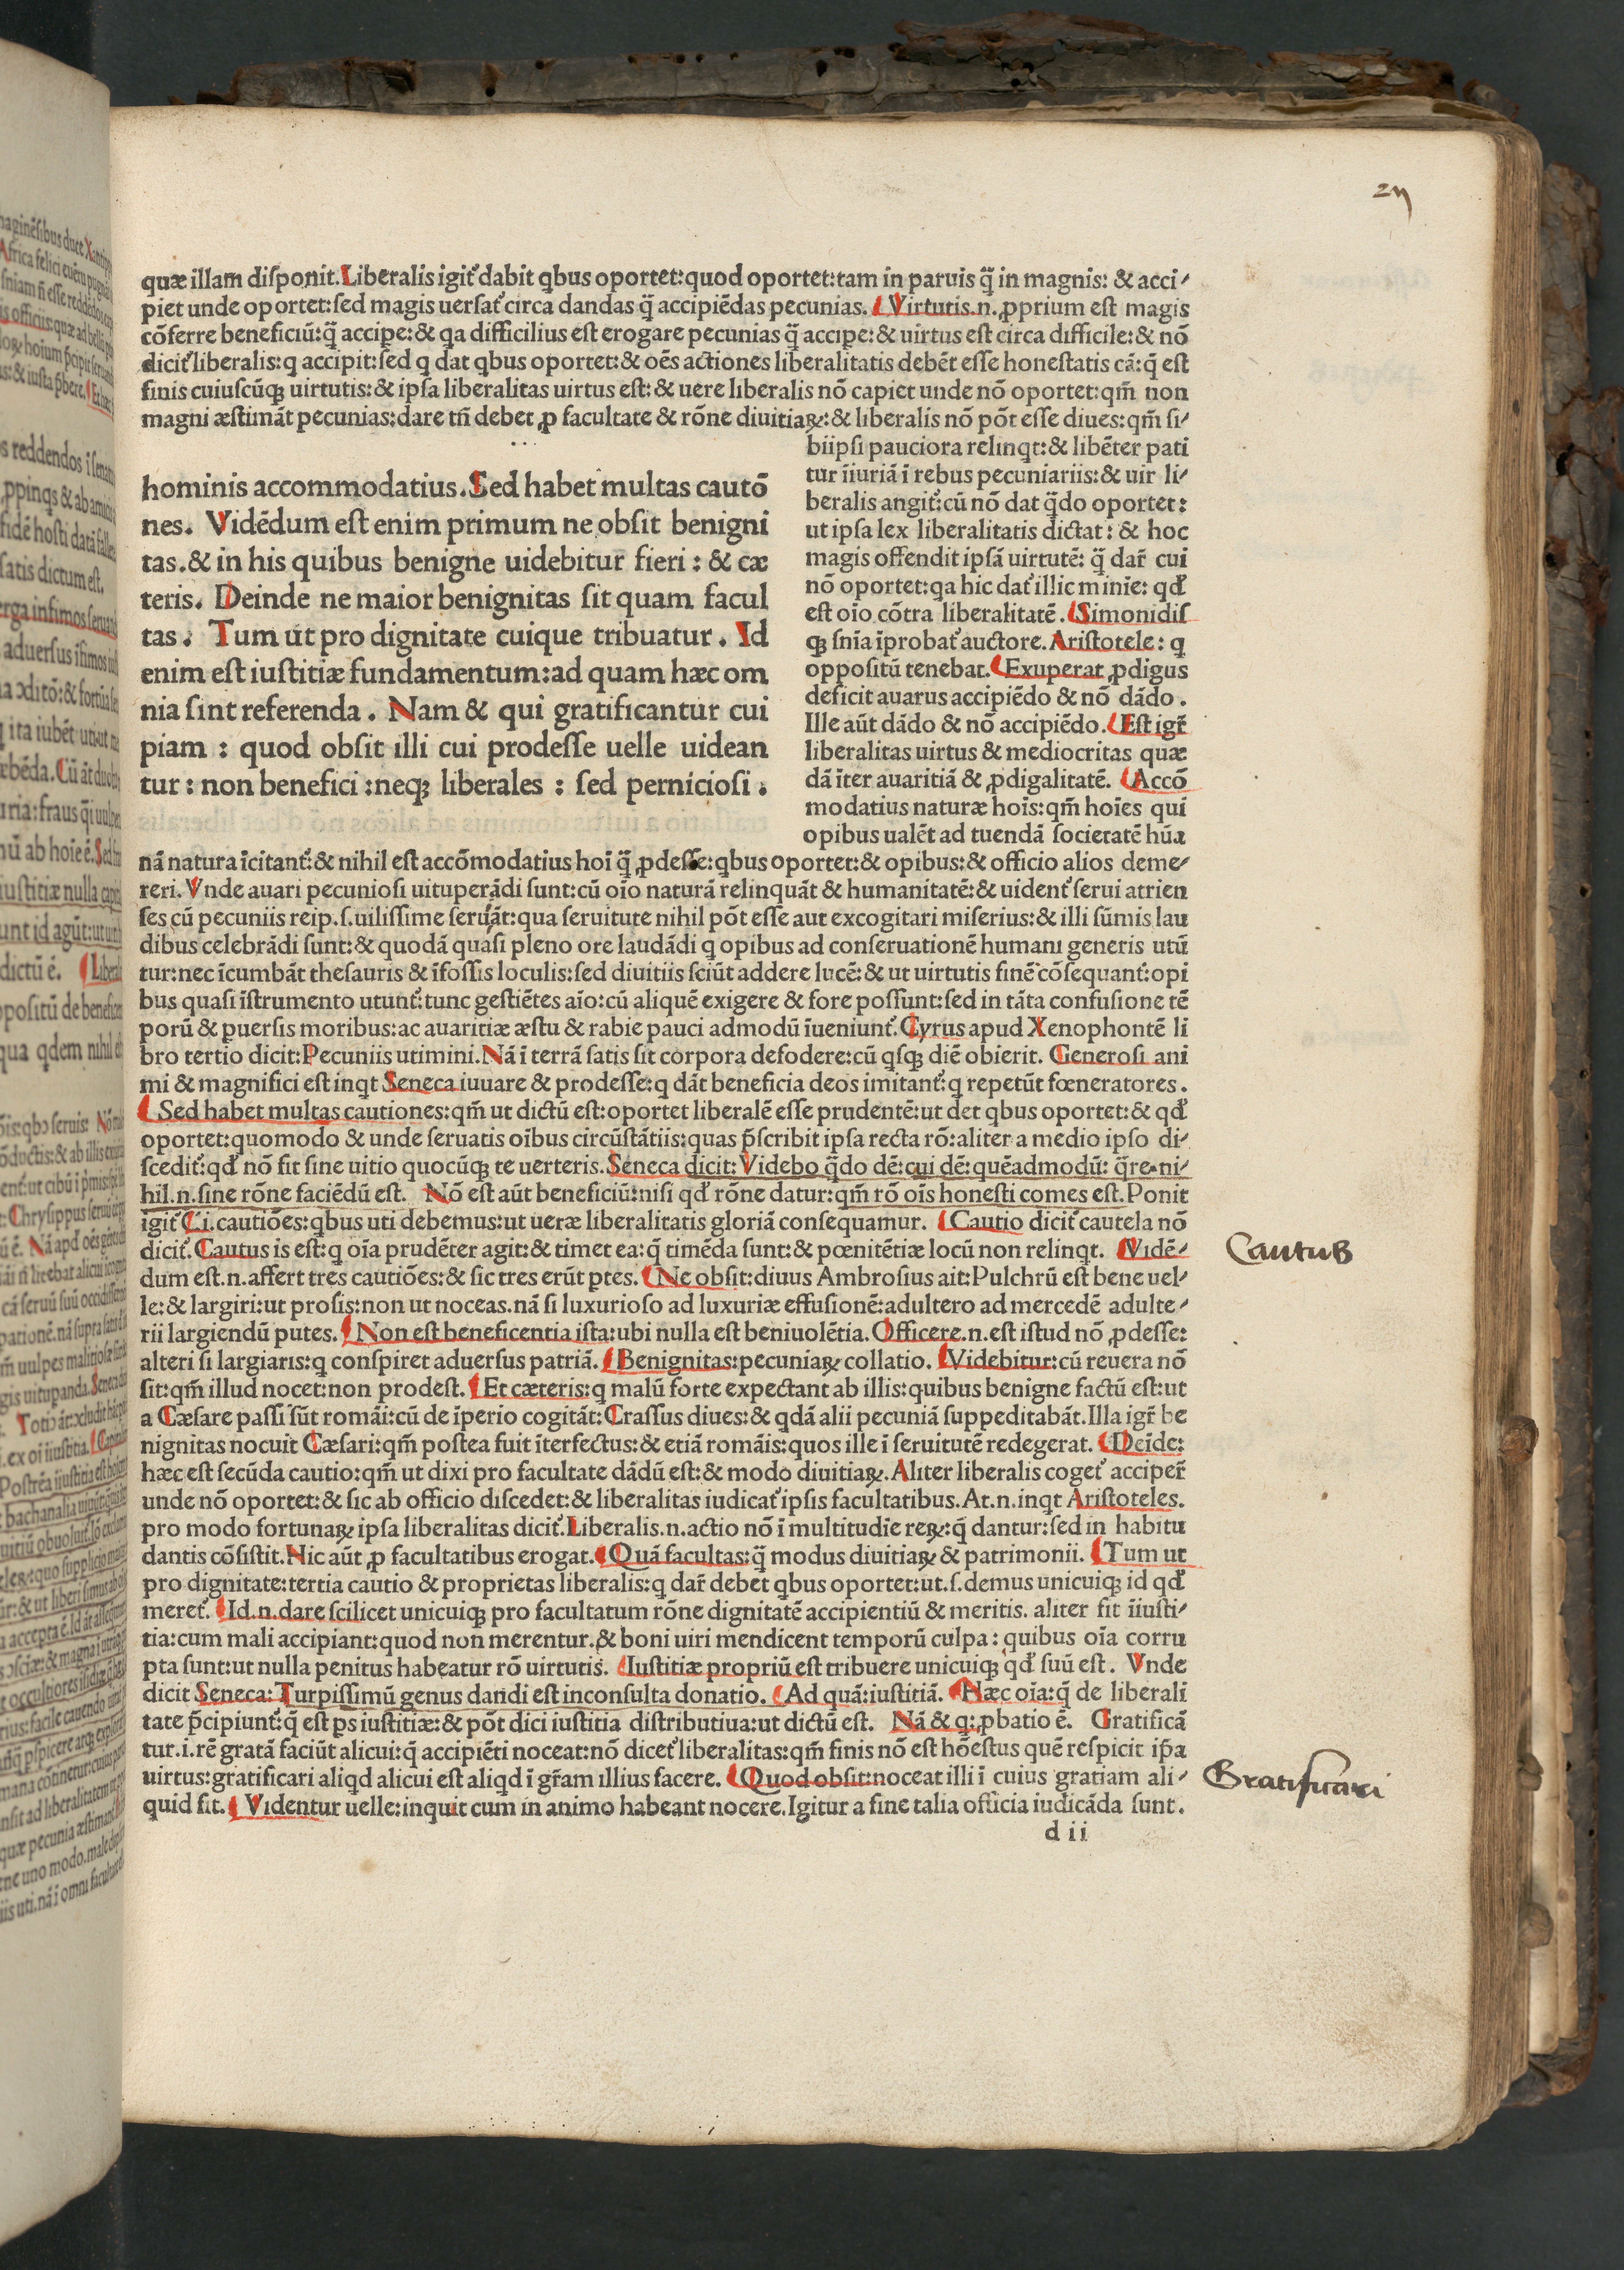 quæ illam diſponit.Liberalis igit᷑ dabit qbus oportet:quod oportet:tam in paruis q̃ in magnis: & acci⸗
piet unde oportet:ſed magis uerſat᷑ circa dandas q̃ accipiẽdas pecunias. Virtutis.n.ꝓprium eſt magis
cõferre beneficiũ:q̃ accipe:& qa difficilius eſt erogare pecunias q̃ accipe:& uirtus eſt circa difficile:& nõ
dicit᷑ liberalis:q accipit:ſed q dat qbus oportet:& oẽs actiones liberalitatis debẽt eſſe honeſtatis cã:q̃ eſt
finis cuiuſcũqꝫ uirtutis:& ipſa liberalitas uirtus eſt:& uere liberalis nõ capiet unde nõ oportet:qm̃ non
magni æſtimãt pecunias:dare tñ debet ꝓ facultate & rõne diuitiaꝝ:& liberalis nõ põt eſſe diues:qm̃ ſi⸗
biipſi pauciora relinqt:& libẽter pati
tur ĩiuriã ĩ rebus pecuniariis:& uir li⸗
beralis angit᷑:cũ nõ dat q̃do oportet:
ut ipſa lex liberalitatis dictat: & hoc
magis offendit ipſã uirtutẽ: q̃ dar̃ cui
nõ oportet:qa hic dat᷑ illic miniẽ: qđ
eſt oĩo cõtra liberalitatẽ. Simonidiſ
qꝫ ſnĩa ĩprobat᷑ auctore. Ariſtotele: q
oppoſitũ tenebat. Exuperat ꝓdigus
deficit auarus accipiẽdo & nõ dãdo.
Ille aũt dãdo & nõ accipiẽdo. Eſt igr̃
liberalitas uirtus & mediocritas quæ
dã ĩter auaritiã & ꝓdigalitatẽ. Accõ
modatius naturæ hoĩs:qm̃ hoĩes qui
opibus ualẽt ad tuendã ſocietatẽ hũa
hominis accommodatius. Sed habet multas cautõ
nes. Vidẽdum eſt enim primum ne obſit benigni
tas.& in his quibus benigne uidebitur fieri : & cæ
teris. Deinde ne maior benignitas ſit quam facul
tas. Tum ut pro dignitate cuique tribuatur. Id
enim eſt iuſtitiæ fundamentum:ad quam hæc om
nia ſint referenda. Nam & qui gratificantur cui
piam : quod obſit illi cui prodeſſe uelle uidean
tur : non benefici :neqꝫ liberales : ſed pernicioſi.
nã natura ĩcitant᷑:& nihil eſt accõmodatius hoĩ q̃ ꝓdeſſe:qbus oportet:& opibus:& officio alios deme⸗
reri. Vnde auari pecunioſi uituperãdi ſunt:cũ oĩo naturã relinquãt & humanitatẽ:& uident᷑ ſerui atrien
ſes cũ pecuniis reip.ſ.uiliſſime ſeruãt:qua ſeruitute nihil põt eſſe aut excogitari miſerius:& illi ſũmis lau
dibus celebrãdi ſunt:& quodã quaſi pleno ore laudãdi q opibus ad conſeruationẽ humani generis utũ
tur:nec ĩcumbãt theſauris & ĩfoſſis loculis:ſed diuitiis ſciũt addere lucẽ:& ut uirtutis finẽ cõſequant᷑:opi
bus quaſi ĩſtrumento utunt᷑:tunc geſtiẽtes aĩo:cũ aliquẽ exigere & fore poſſunt:ſed in tãta confuſione tẽ
porũ & puerſis moribus:ac auaritiæ æſtu & rabie pauci admodũ ĩueniunt᷑. Cyrus apud Xenophontẽ li
bro tertio dicit:Pecuniis utimini. Nã ĩ terrã ſatis ſit corpora defodere:cũ qſqꝫ diẽ obierit. Generoſi ani
mi & magnifici eſt inqt Seneca iuuare & prodeſſe:q dãt beneficia deos imitant᷑:q repetũt fœneratores.
Sed habet multas cautiones:qm̃ ut dictũ eſt:oportet liberalẽ eſſe prudentẽ:ut det qbus oportet:& qđ
oportet:quomodo & unde ſeruatis oĩbus circũſtãtiis:quas p̃ſcribit ipſa recta rõ:aliter a medio ipſo di⸗
ſcedit᷑:qđ nõ fit ſine uitio quocũqꝫ te uerteris. Seneca dicit: Videbo q̃do dẽ:cui dẽ:quẽadmodũ: q̃re.ni⸗
hil.n.ſine rõne faciẽdũ eſt. Nõ eſt aũt beneficiũ:niſi qđ rõne datur:qm̃ rõ oĩs honeſti comes eſt. Ponit
igit᷑ Ci.cautiões:qbus uti debemus:ut ueræ liberalitatis gloriã conſequamur. Cautio dicit᷑ cautela nõ
dicit᷑. Cautus is eſt:q oĩa prudẽter agit:& timet ea:q̃ timẽda ſunt:& pœnitẽtiæ locũ non relinqt. Vidẽ⸗
dum eſt.n.affert tres cautiões:& ſic tres erũt ptes. Ne obſit:diuus Ambroſius ait:Pulchrũ eſt bene uel⸗
le:& largiri:ut proſis:non ut noceas.nã ſi luxurioſo ad luxuriæ effuſionẽ:adultero ad mercedẽ adulte⸗
rii largiendũ putes. Non eſt beneficentia iſta:ubi nulla eſt beniuolẽtia. Officere.n.eſt iſtud nõ ꝓdeſſe:
alteri ſi largiaris:q conſpiret aduerſus patriã. Benignitas:pecuniaꝝ collatio. Videbitur:cũ reuera nõ
ſit:qm̃ illud nocet:non prodeſt. Et cæteris:q malũ forte expectant ab illis:quibus benigne factũ eſt:ut
a Cæſare paſſi ſũt romãi:cũ de ĩperio cogitãt:Craſſus diues:& qdã alii pecuniã ſuppeditabãt.Illa igr̃ be
nignitas nocuit Cæſari:qm̃ poſtea fuit ĩterfectus:& etiã romãis:quos ille ĩ ſeruitutẽ redegerat. Deĩde:
hæc eſt ſecũda cautio:qm̃ ut dixi pro facultate dãdũ eſt:& modo diuitiaꝝ. Aliter liberalis coget᷑ acciper̃
unde nõ oportet:& ſic ab officio diſcedet:& liberalitas iudicat᷑ ipſis facultatibus.At.n.inqt Ariſtoteles.
pro modo fortunaꝝ ipſa liberalitas dicit᷑. Liberalis.n.actio nõ ĩ multitudĩe reꝝ:q̃ dantur:ſed in habitu
dantis cõſiſtit.Hic aũt ꝓ facultatibus erogat. Quã facultas:q̃ modus diuitiaꝝ & patrimonii. Tum ut
pro dignitate:tertia cautio & proprietas liberalis:q dar̃ debet qbus oportet:ut.ſ.demus unicuiqꝫ id qđ
meret᷑. Id.n.dare ſcilicet unicuiqꝫ pro facultatum rõne dignitatẽ accipientiũ & meritis. aliter fit ĩiuſti⸗
tia:cum mali accipiant:quod non merentur.& boni uiri mendicent temporũ culpa: quibus oĩa corru
pta ſunt:ut nulla penitus habeatur rõ uirtutis. Iuſtitiæ propriũ eſt tribuere unicuiqꝫ qđ ſuũ eſt. Vnde
dicit Seneca: Turpiſſimũ genus dandi eſt inconſulta donatio. Ad quã:iuſtitiã. Hæc oĩa:q̃ de liberali
tate p̃cipiunt᷑:q̃ eſt ps iuſtitiæ:& põt dici iuſtitia diſtributiua:ut dictũ eſt. Nã & q:ꝓbatio ẽ. Gratificã
tur.i.rẽ gratã faciũt alicui:q̃ accipiẽti noceat:nõ dicet᷑ liberalitas:qm̃ finis nõ eſt hõeſtus quẽ reſpicit ip̃a
uirtus:gratificari aliqd alicui eſt aliqd ĩ gr̃am illius facere. Quod obſit:noceat illi ĩ cuius gratiam ali⸗
quid fit. Videntur uelle:inquit cum in animo habeant nocere.Igitur a fine talia officia iudicãda ſunt.
d ii
Cautus
Gratificari